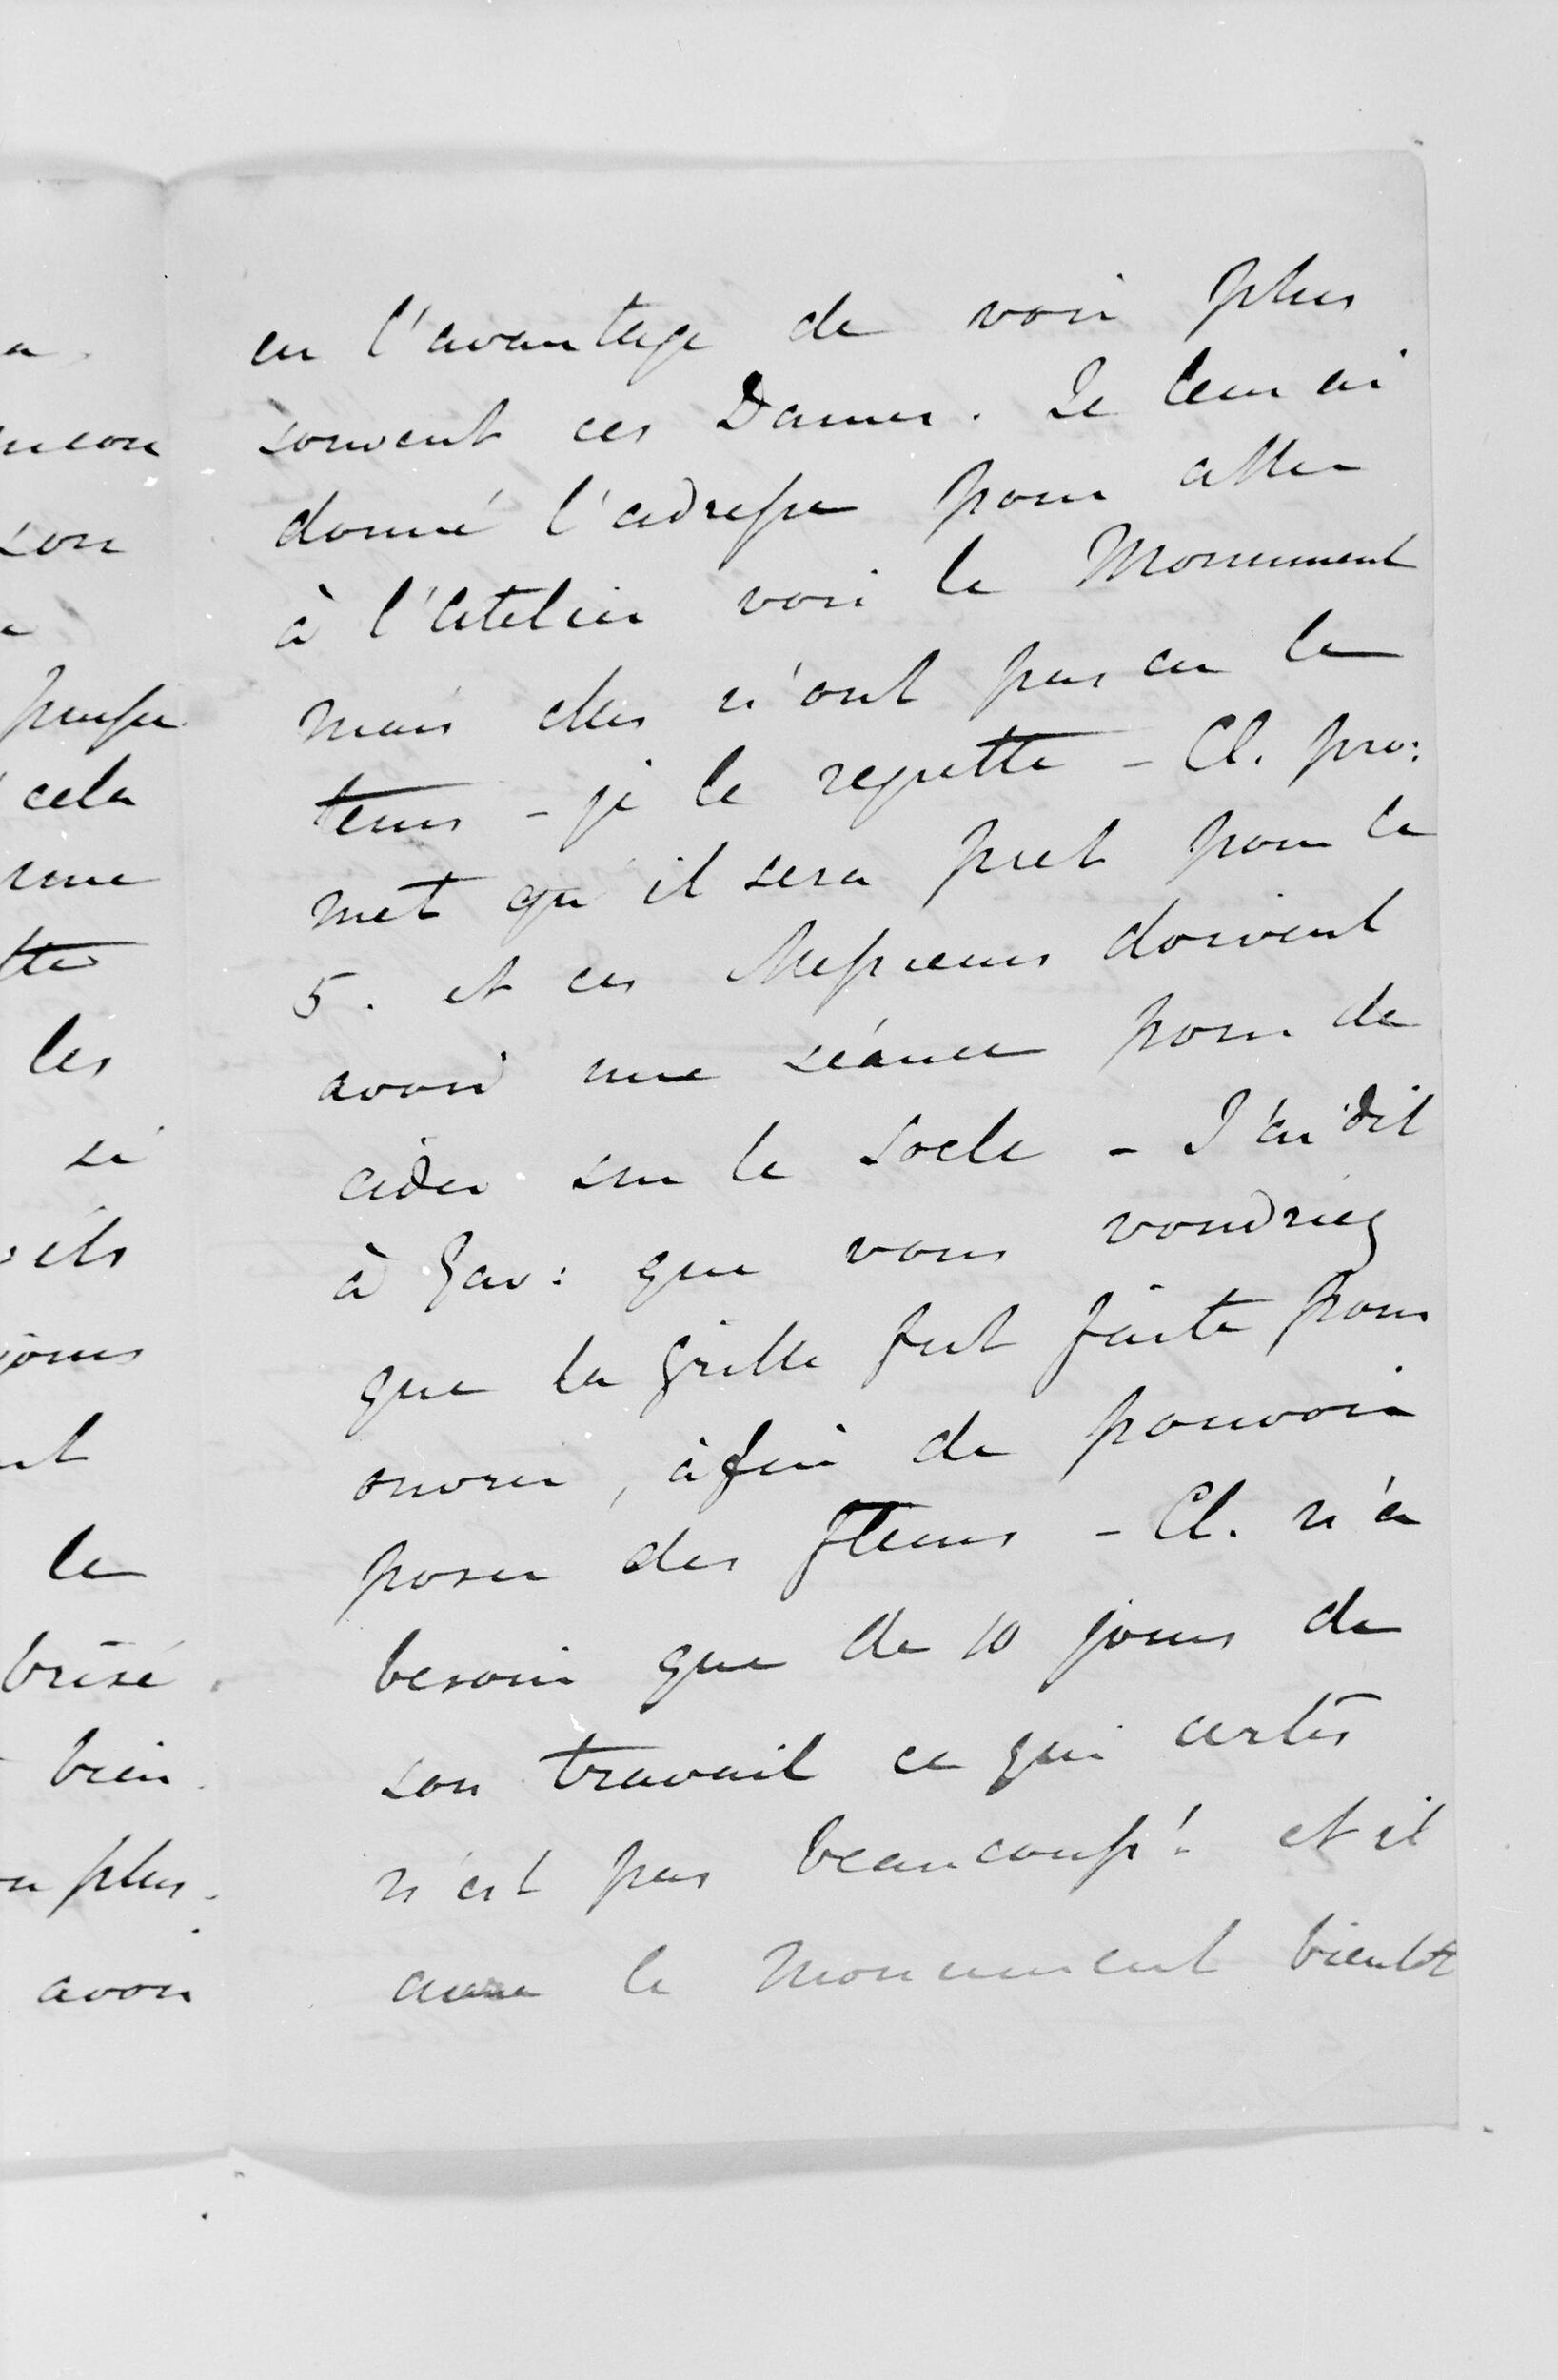 eu l'avantage de voir plus
souvent ces Dames. Je leur ai
donné l'adresse pour aller
à l'atelier voir le Monument
mais elles n'ont pas eu le
tems - je le regrette - Cl. pro:
met qu'il sera pret pour le
5. et ces Messieurs doivent
avoir une séance pour de
cider sur le socle - J'ai dit
à Gav: que vous voudriez
que la grille fut faite pour
ouvrir, à fin de pouvoir
poser des fleurs - Cl. n'a
besoin que de 10 jours de
son travail ce qui certes
n'est pas beaucoup! et il
aura le Monument bientôt
son
cela
les
si
ils
le
brisé
bien
plus
avoir